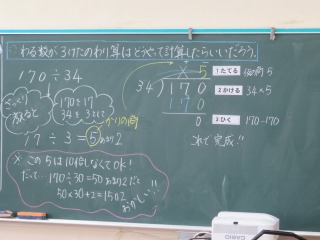 わる数が2けたのわり算はどうやって計算したらいいだろう。
170÷34
ざっくり
考えると
170を17
34を3として
17÷3=5あまり2
かりの商
※この5は10倍しなくてOK!
だって… 170÷30=50あまり2だと
50×30+2=1502
おかしい!!
5
34)170
170
0
1たてる 仮の商5
2かける 34×5
3ひく 170-170
これで完成!!